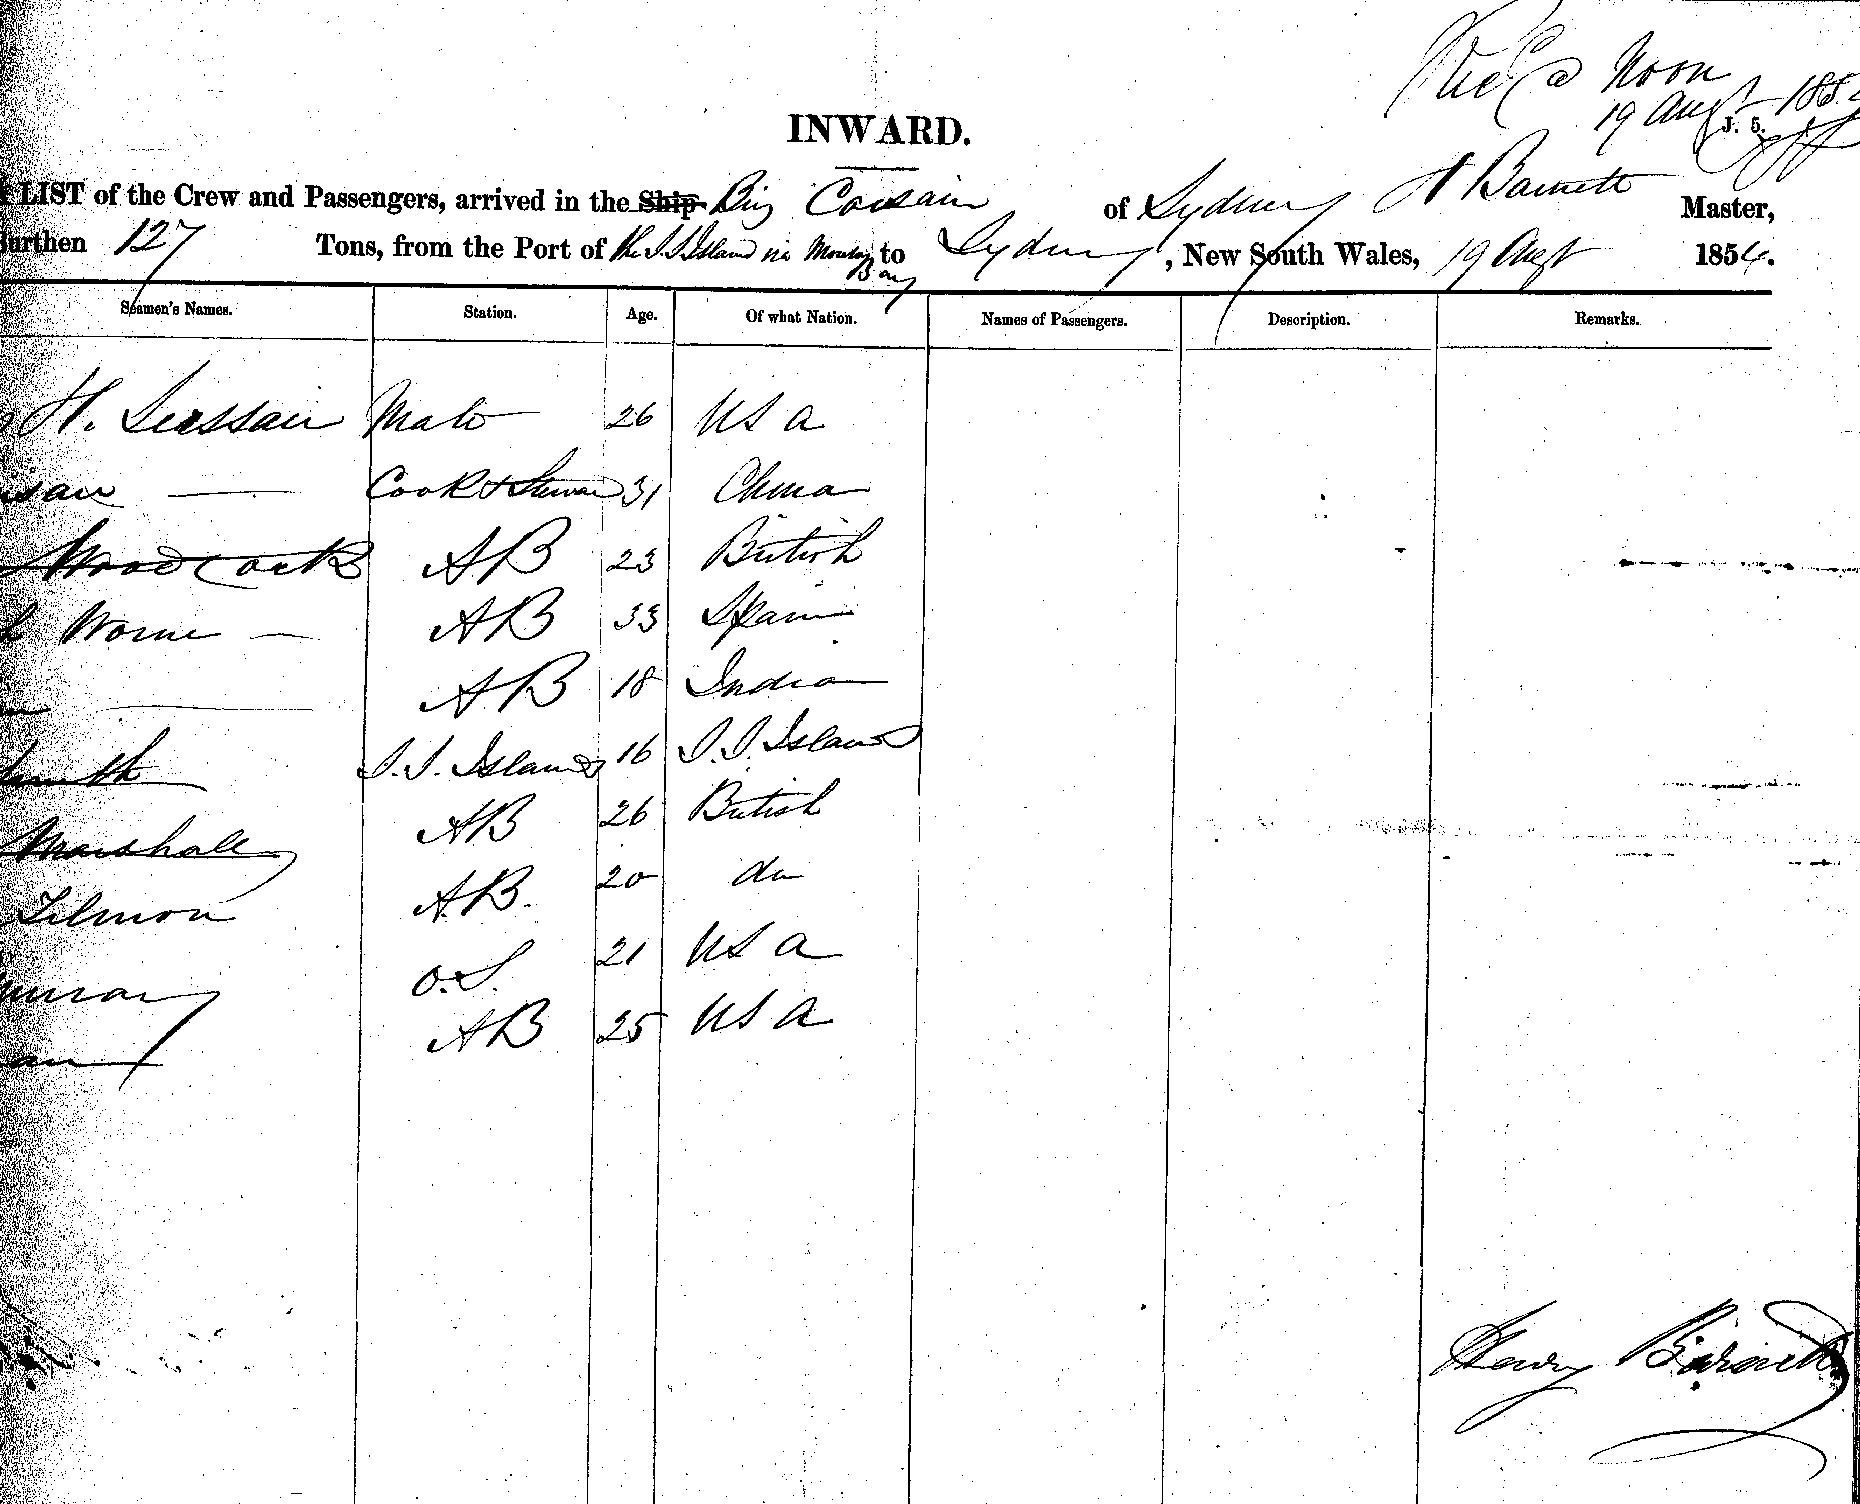 @ Noon
19 Augt 185
J. 5.
INWARD.
LIST of the Crew and Passengers, arrived in the Ship Brig Corsair of Sydney H Barnett Master,
Burthen 127 Tons, from the Port of the S.S. Island via Moreton Bay to Sydney, New South Wales, 19 Augt 1854.
Seamen's Names. Station. Age. Of what Nation. Names of Passengers. Description. Remarks.
H. Mate 26 US a
Cook & Steward 31 China
Woodcock AB 23 British
Worne AB 33 Spain
AB 18 India
Smith S.S. Island 16 S.S. Island
Marshall AB 26 British
Tilmon AB. 20 do
O.S. 21 US a
AB 25 US a
Henry Barnett